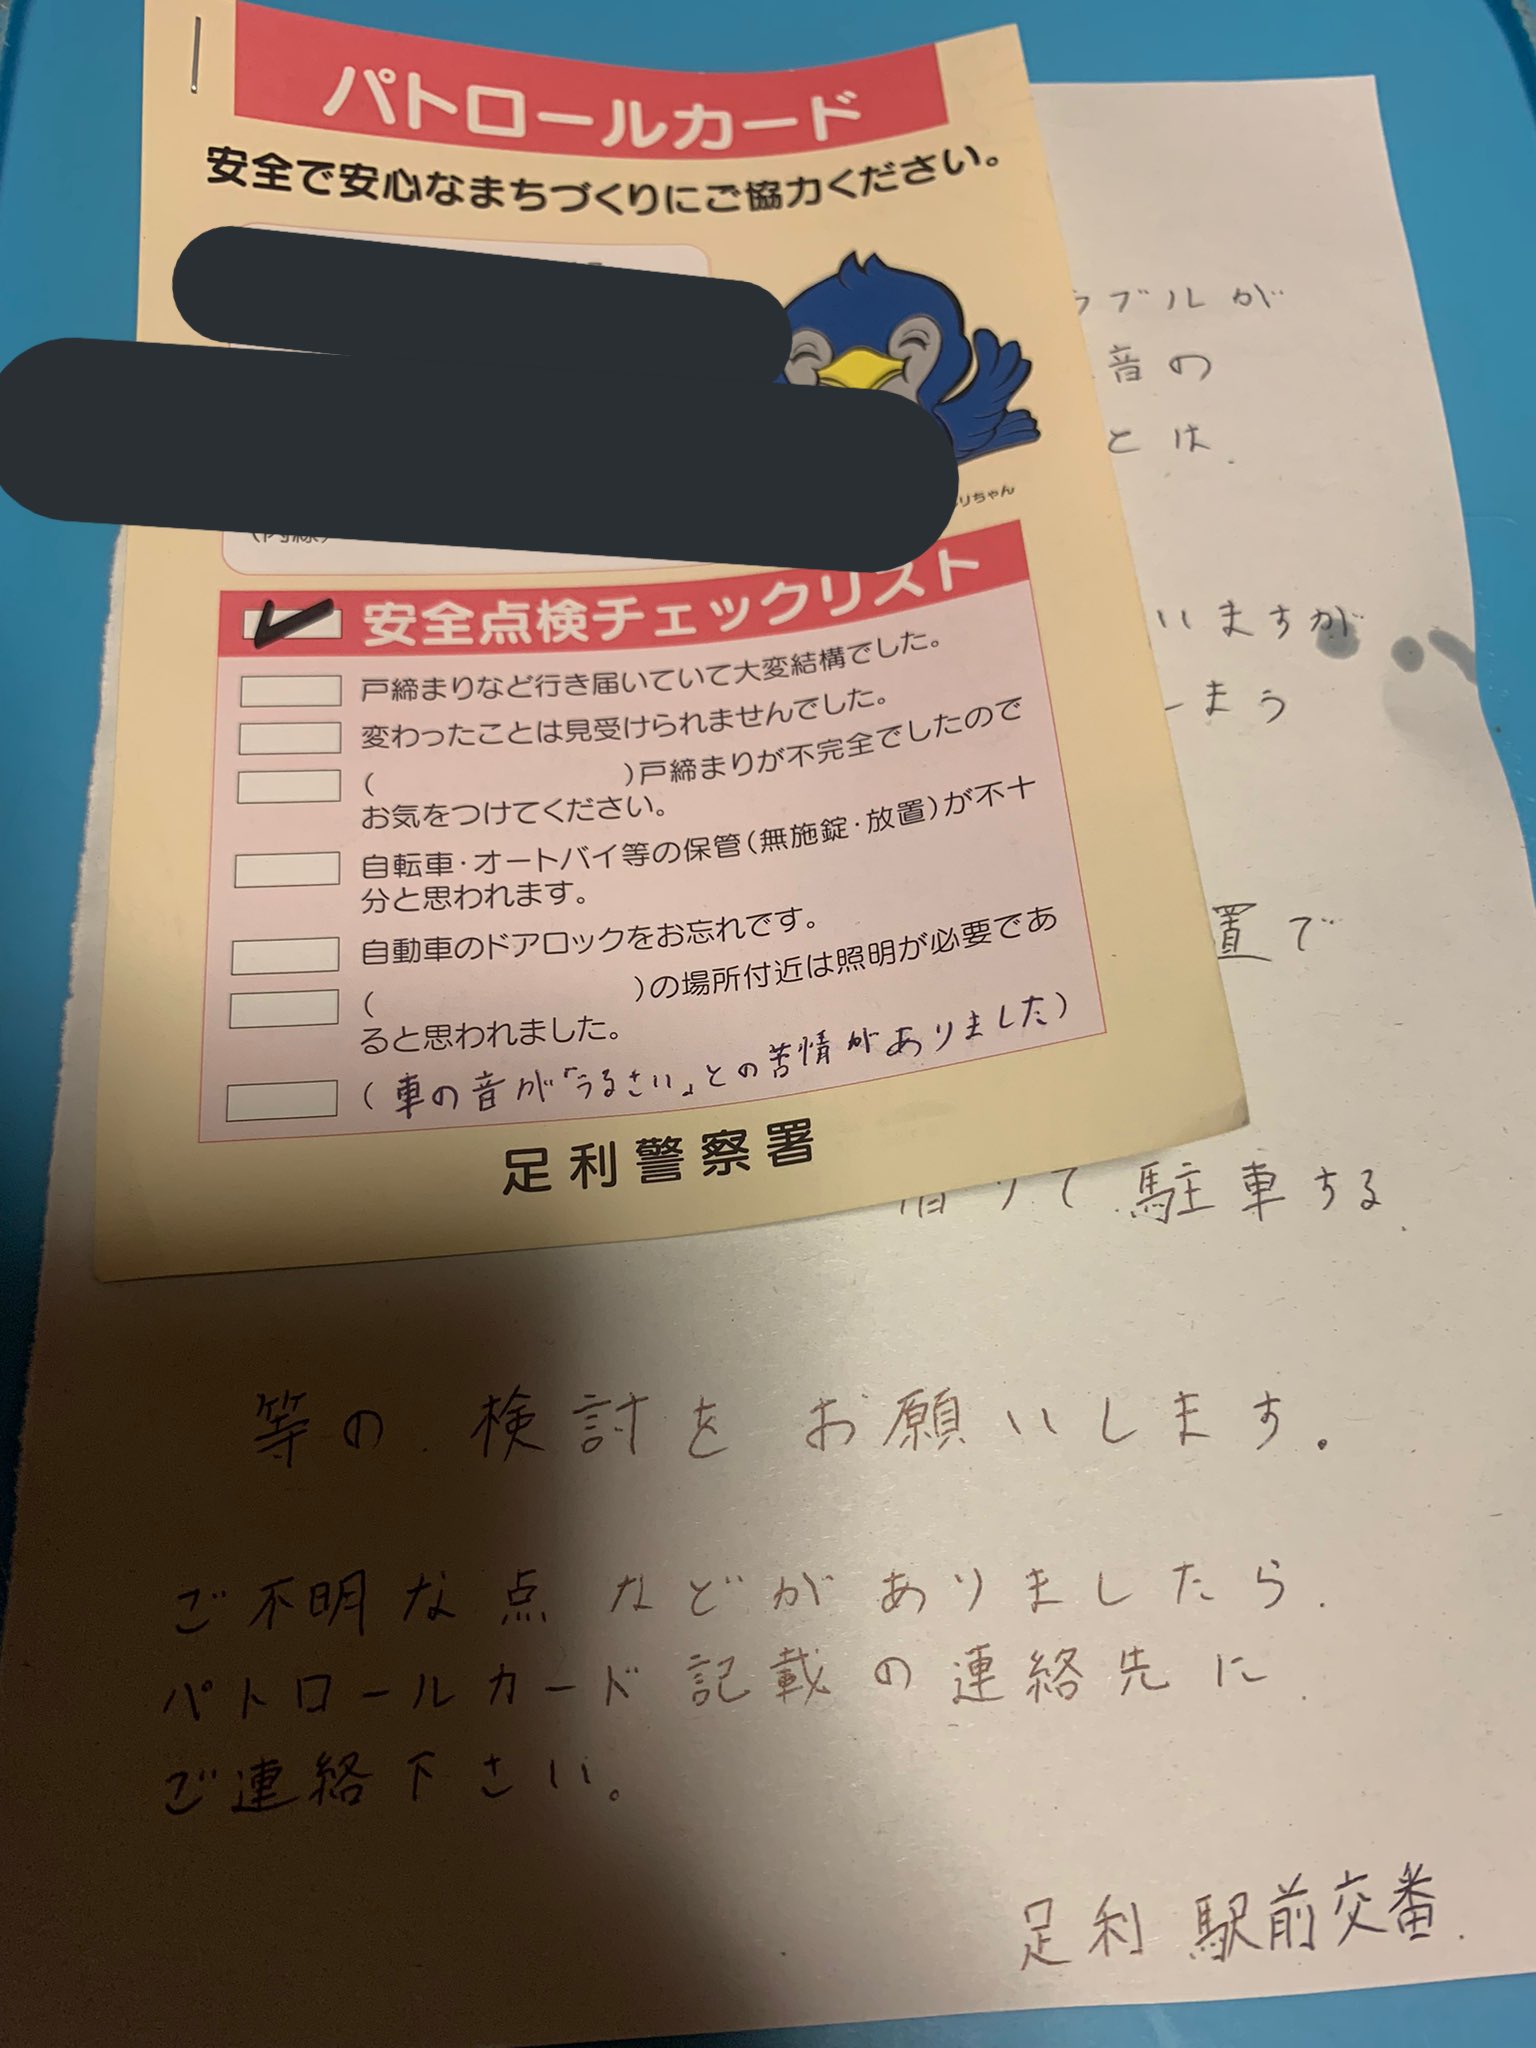 パトロールカード
安全で安心なまちづくりにご協力ください。
りちゃん
安全点検チェックリスト
戸締まりなど行き届いていて大変結構でした。
変わったことは見受けられませんでした。
( )戸締まりが不完全でしたので
お気をつけてください。
自転車・オートバイ等の保管(無施錠・放置)が不十
分と思われます。
自動車のドアロックをお忘れです。
( )の場所付近は照明が必要であ
ると思われました。
(車の音が「うるさい」との苦情がありました)
足利警察署
ラブルが
音の
とは
いますが
しまう
置で
借りて駐車する
等の検討をお願いします。
ご不明な点などがありましたら
パトロールカード記載の連絡先に
ご連絡下さい。
足利駅前交番